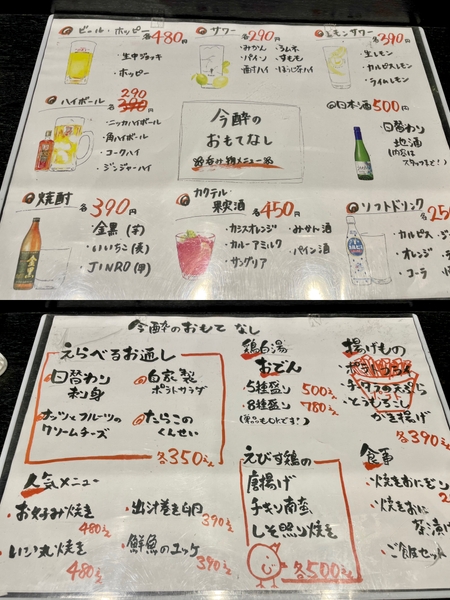 ビール・ホッピー 各480円
・生中ジョッキ
・ホッピー
サワー 各290円
・みかん ・ラムネ
・パイン ・すもも
・酎ハイ ・ほうじ茶ハイ
レモンサワー 各390円
・生レモン
・カルピスレモン
・ライムレモン
ハイボール 290 390円
・ニッカハイボール
・角ハイボール
・コークハイ
・ジンジャーハイ
今酔の
おもてなし
呑み物メニュー
日本酒 500円
・日替わり
地酒
(内容は
スタッフまで!)
焼酎 各390円
・金黒(芋)
・いいちこ(麦)
・JINRO(甲)
カクテル・
果実酒 各450円
・カシスオレンジ ・みかん酒
・カルーアミルク ・パイン酒
・サングリア
ソフトドリンク 各25
・カルピス
・オレンジ
・コーラ
今酔のおもてなし
えらべるお通し
日替わり
刺身
自家製
ポテトサラダ
ナッツとフルーツの
クリームチーズ
たらこの
くんせい
各350
鶏白湯
おでん
5種盛り 500
8種盛り 780
(単品もOKです!)
揚げもの
ポテトフライ
チーズの天ぷら
とうもろこし
かき揚げ
各390
人気メニュー
・お好み焼き 480
・出汁巻き卵 390
・いか丸焼き 480
・鮮魚のユッケ 390
えびす鶏の
唐揚げ
チキン南蛮
しそ照り焼き
各500
食事
・焼きおにぎり
・焼きおに
茶漬け
・ご飯セット